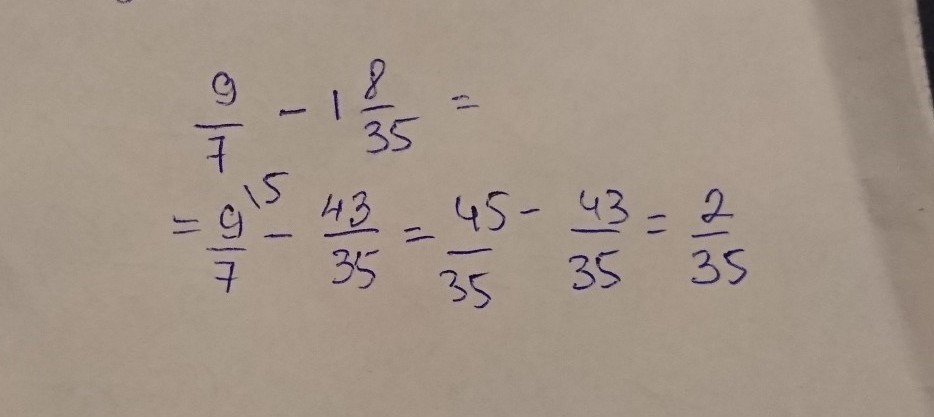 9/7 - 1 8/35 =
= 9\5/7 - 43/35 = 45/35 - 43/35 = 2/35